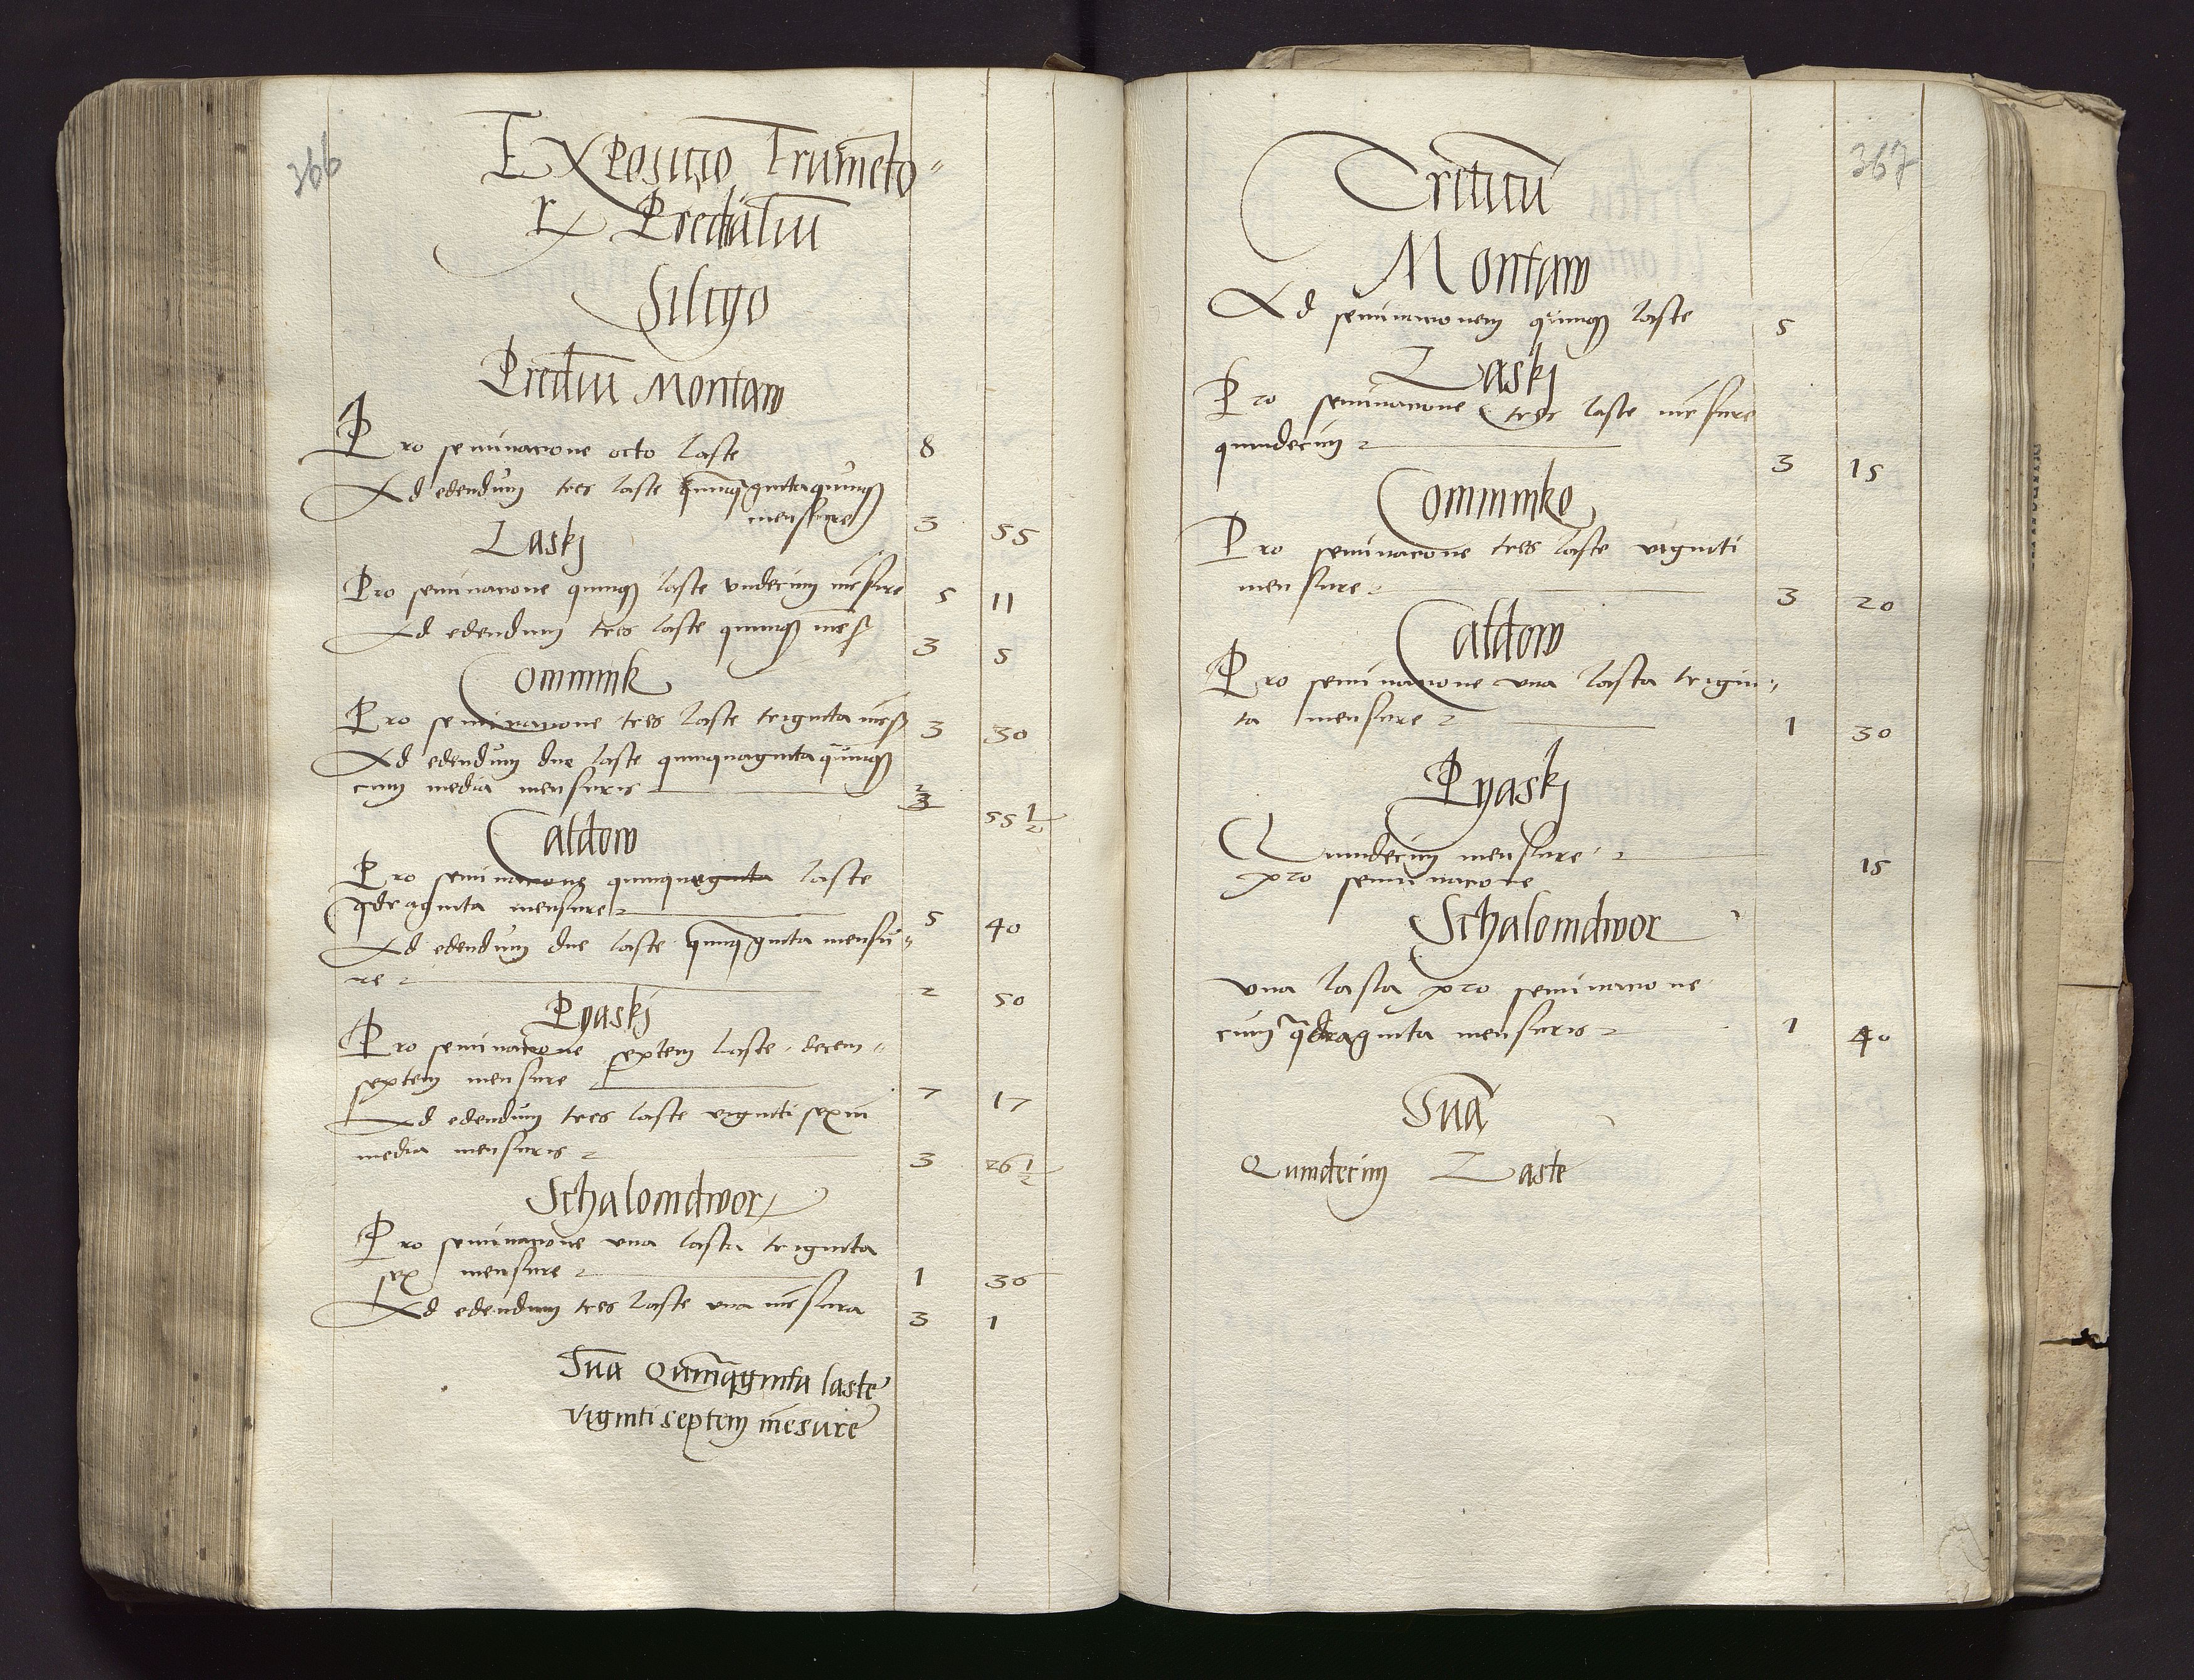 366
Expositio Frumēto„
rx Predialiū
Siligo
Prediū Montaw
Pro seminacione octo laste 8
Ad edendum tres laste quinqᵃgintaquinqꝫ
mensure 3 55
Laskj
Pro seminacione quinqꝫ laste undecim mēsure 5 11
Ad edendum tres laste quinqꝫ mēs 3 5
Commink
Pro seminacione tres laste triginta mēs 3 30
Ad edendum due laste quinquagintaquinqꝫ
cum media mensuris 2 55 ½
Caldow
Pro seminacione quinque laste
qᵃdraginta mensure 5 40
Ad edendum due laste quinqᵃginta mensu„
re 2 50
Pyaskj
Pro seminacione septem laste decem„
septem mensure 7 17
Ad edendum tres laste viginti sexm
media mensuris 3 26 ½
Schalomdwor
Pro seminacione una lasta triginta
sex mensure 1 36
Ad edendum tres laste una mēsura 3 1
Sūa Quinqᵃginta laste
viginti septem mēsure
367
Triticū
Montaw
Ad seminacionem quinqꝫ laste 5
Laskj
Pro seminacione tres laste mēsure
quindecim 3 15
Comminko
Pro seminacione tres laste viginti
mensure 3 20
Caldow
Pro seminacione una lasta trigin„
ta mensure 1 30
Pyaskj
Quindecim mensure 15
pro seminacione
Schalomdwor
una lasta pro seminacione
cum qᵃdraginta mensuris 1 40
Sūa
Quindecim Laste